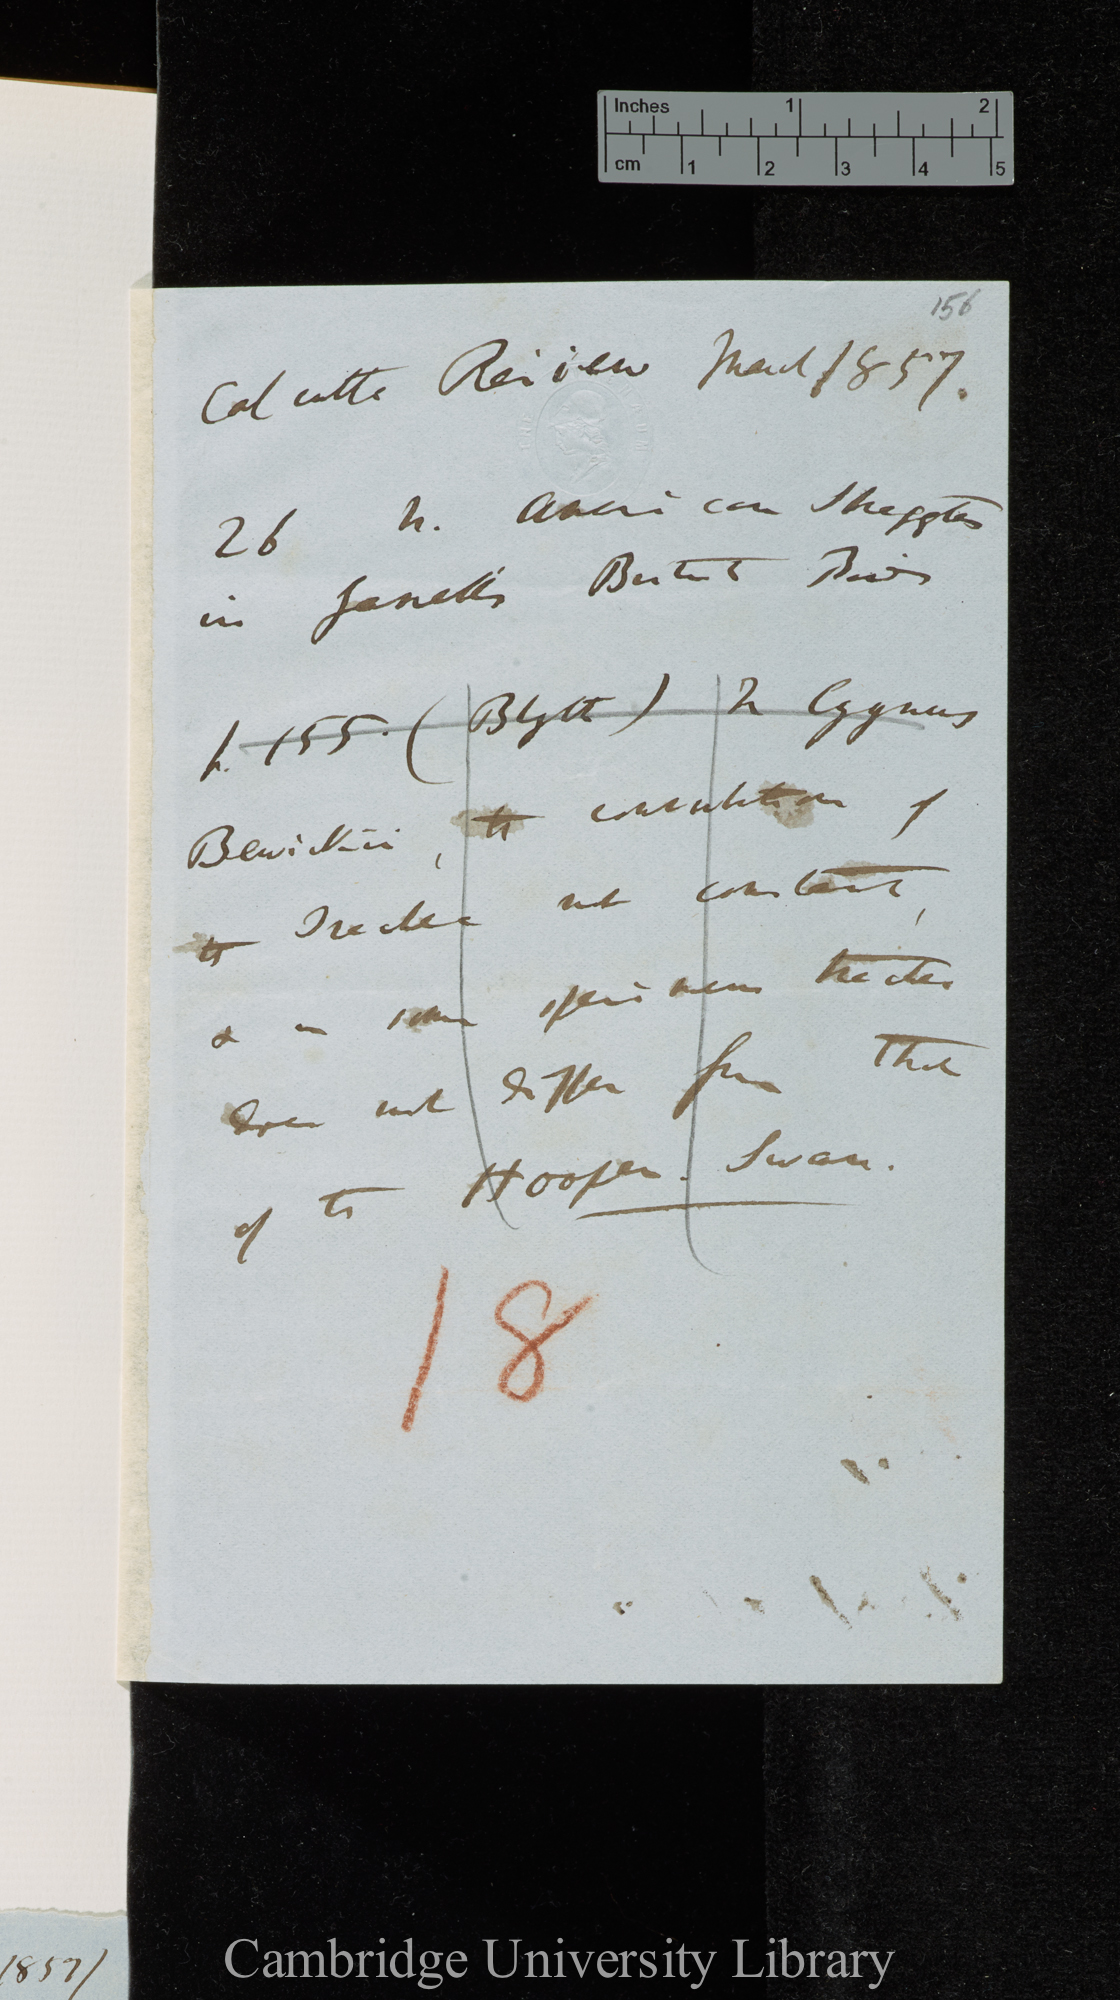 Inches 1 2
cm 1 2 3 4 5
156
Calcutta Review March 1857.
26 N. American Stragglers
in Yarrell's British Birds
p. 155. (Blyth) In Cygnus
Bewickii, the convolution of
the Trachea not constant,
& in some specimens trachea
does not differ from that
of the Hooper. Swan.
18
1857)
Cambridge University Library